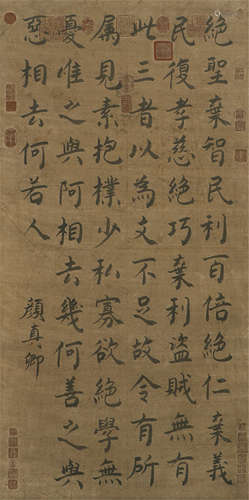 絕聖棄智民利百倍絕仁棄義
民復孝慈絕巧棄利盜賊無有
此三者以為文不足故令有所
屬見素抱樸少私寡欲絕學無
憂唯之與阿相去幾何善之與
惡相去何若人
顏真卿